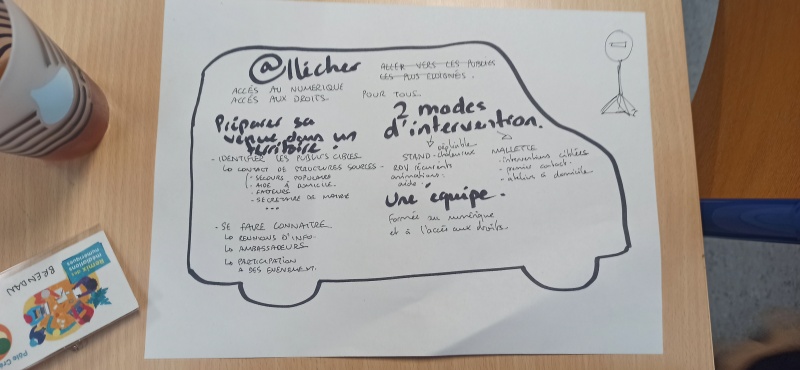 @llécher
ALLER VERS LES PUBLICS
LES PLUS ELOIGNÉS.
ACCÈS AU NUMÉRIQUE
ACCÈS AUX DROITS
POUR TOUS
Préparer sa
venue dans un
territoire !
- IDENTIFIER LES PUBLICS CIBLES
↳ CONTACT DE STRUCTURES SOURCES
- SECOURS POPULAIRE
- AIDE À DOMICILE
- FACTEURS
- SECRÉTAIRE DE MAIRIE
...
- SE FAIRE CONNAITRE
↳ REUNIONS D'INFO.
↳ AMBASSADEURS
↳ PARTICIPATION
A DES EVENEMENT.
2 modes
d'intervention.
dépliable
STAND chaleureux
- RDV récurents
animations.
aide.
MALLETTE
- interventions ciblées
- premier contact.
- ateliers à domicile.
Une équipe.
Formée au numérique
et à l'accès aux droits.
Remix
médiations
numériques
BRENDAN